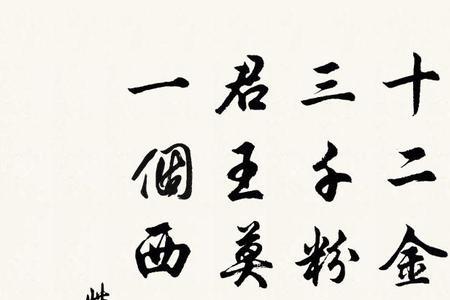 十二金
三千粉
君王莫
一個西